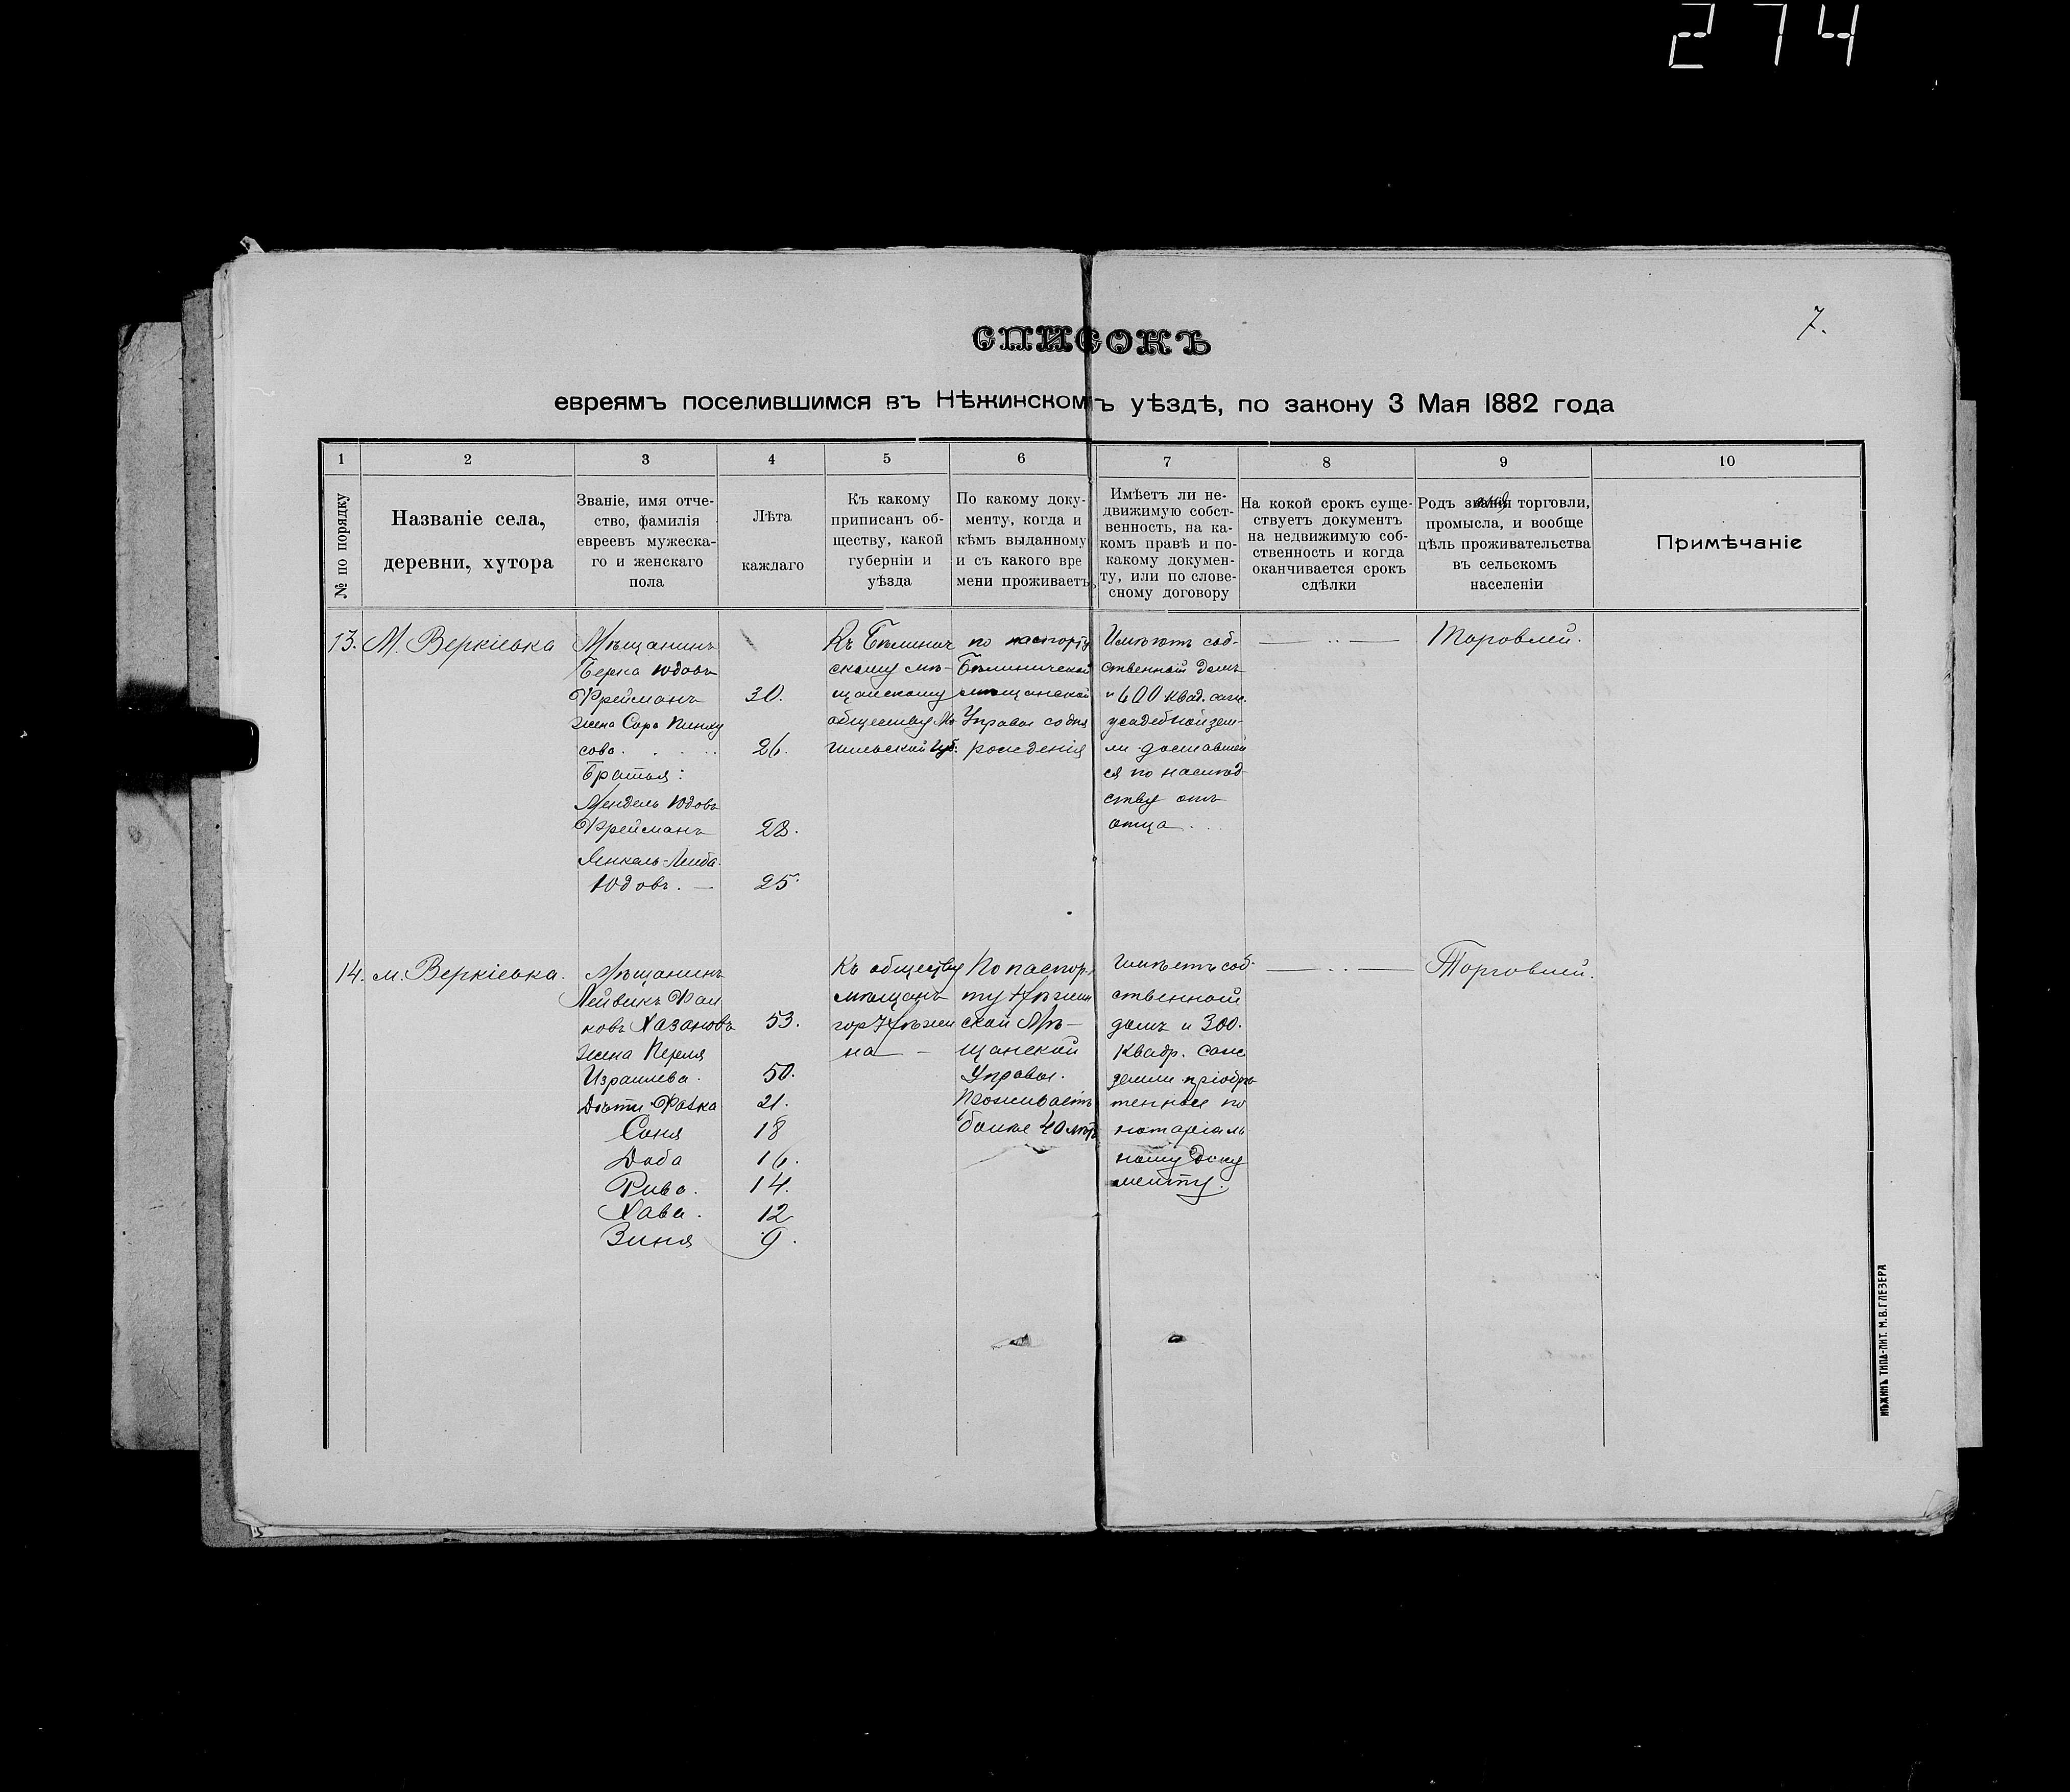 274
7.
СПИСОКЪ
евреямъ поселившимся въ Нѣжинскомъ уѣздѣ, по закону 3 Мая 1882 года
1
2
3
4
5
6
7
8
9
10
№ по порядку
Названіе села,
деревни, хутора
Званіе, имя отче-
ство, фамилія
евреевъ мужеска-
го и женскаго
пола
Лѣта
каждаго
Къ какому
приписанъ об-
ществу, какой
губерніи и
уѣзда
По какому доку-
менту, когда и
кѣмъ выданному
и съ какого вре
мени проживаетъ
Имѣетъ ли не-
движимую собст-
венность, на ка-
комъ правѣ и по-
какому докумен-
ту, или по слове-
сному договору
На кокой срокъ суще-
ствуетъ документъ
на недвижимую соб-
ственность и когда
оканчивается срокъ
сдѣлки
Родъ званія торговли,
промысла, и вообще
цѣль проживательства
въ сельскомъ
населеніи
Примѣчаніе
13.
М. Веркіевка
Мѣщанинъ
Берка Юдовъ
Фрейманъ 30.
жена Сора Пинку
сова . . . 26.
Братья:
Мендель Юдовъ
Фрейманъ 28.
Янкель-Лейба
Юдовъ. — 25.
Къ Бѣлинич
скому мѣ-
щанскому
обществу Мо
гилевской губ.
по паспорту
Бѣлиничской
мѣщанской
Управы со дня
рожденія
Имѣютъ соб-
ственный домъ
и 600 квад. саж.
усадебной зем-
ли доставшей
ся по наслѣд-
ству отъ
отца . . .
— .. —
Торовлей.
14.
м. Веркіевка.
Мѣщанинъ
Лейвикъ Фай
ковъ Хазановъ 53.
жена Перля
Израилева. 50.
Дѣти Фейка 21.
Соня 18
Доба 16.
Рива. 14.
Хава. 12
Зиня 9.
Къ обществу
мѣщанъ
гор Нѣжи
на —
По паспор-
ту Нѣжин
ской Мѣ-
щанской
Управы.
Проживаетъ
болѣе 40 лѣтъ
Имѣетъ соб-
ственный
домъ и 300.
квадр. саж
земли пріобрѣ
тенные по
нотаріаль
ному доку
менту.
— .. —
Торговлей.
НѢЖИНЪ ТИПО-ЛИТ. М.В.ГЛЕЗЕРА